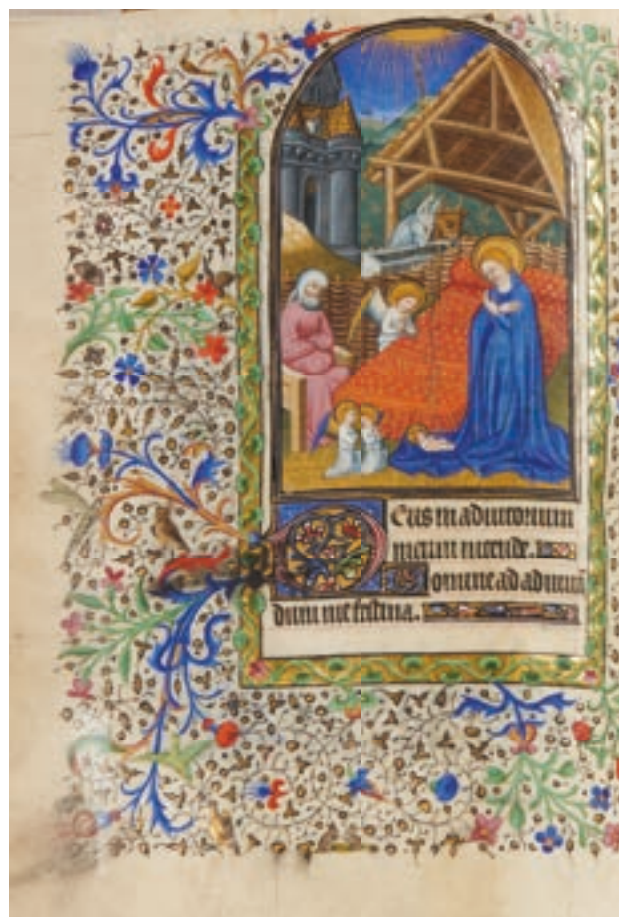 Deus in adiutorium
meum intende.
Domine ad adiuuā
dum me festina.